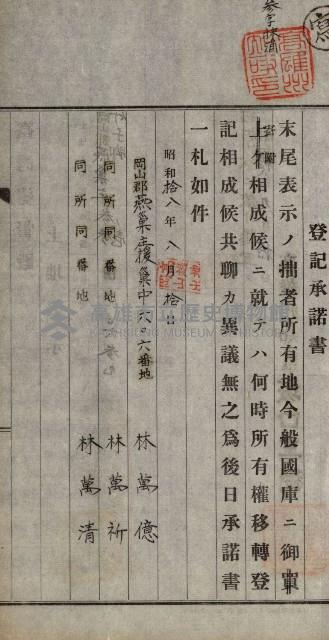 寫
參字抹消
登記承諾書
末尾表示ノ拙者所有地今般國庫ニ御買
上ケ相成候ニ就テハ何時所有權移轉登
寄附
記相成候共聊カ異議無之為後日承諾書
一札如件
昭和拾八年八月拾日
岡山郡燕巢庄援巢中六六六番地
林萬億
同所同番地
林萬祈
同所同番地
林萬清
高雄市立歷史博物館
KAOHSIUNG MUSEUM OF HISTORY